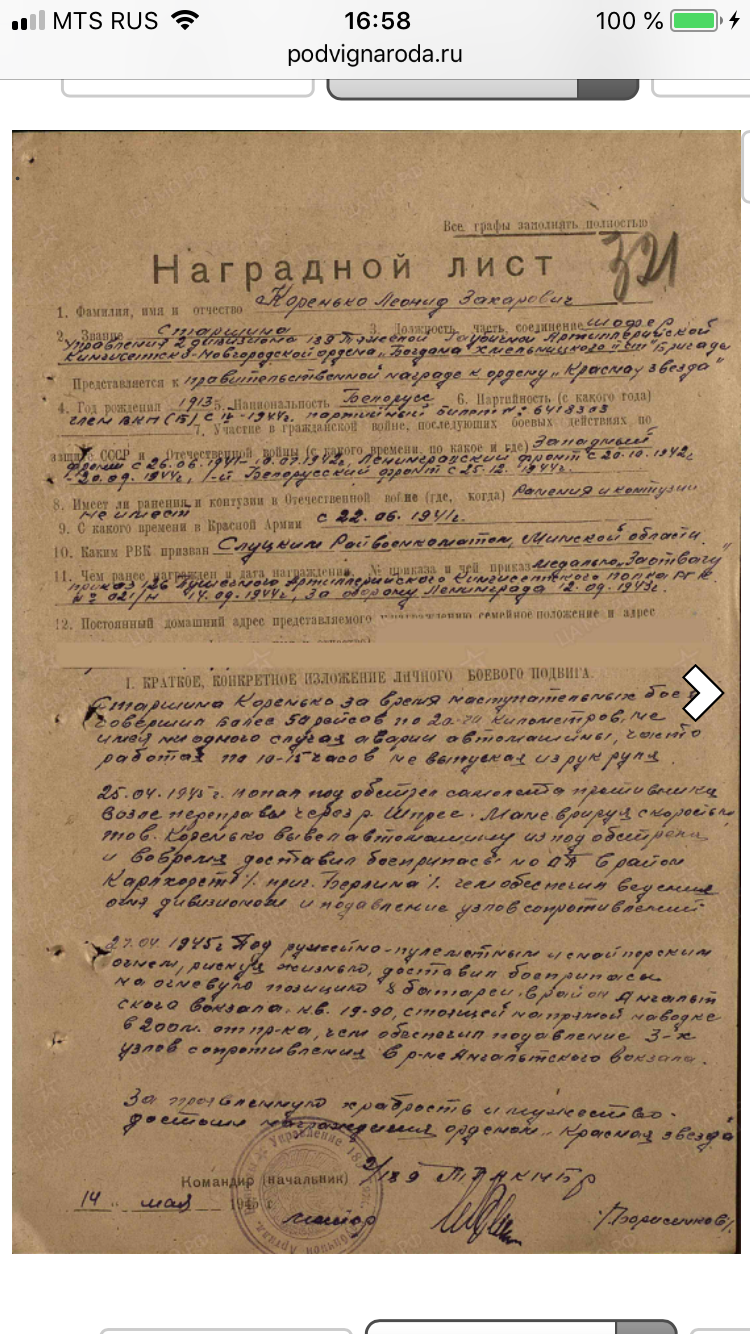 MTS RUS
16:58
100 %
podvignaroda.ru
Все графы заполнять полностью
321
Наградной лист
1. Фамилия, имя и отчество Коренько Леонид Захарович
2. Звание Старшина 3. Должность, часть, соединение шофер
Управления 2 дивизиона 189 Тяжелой Гаубичной Артиллерийской
Кингисеттско-Новгородской ордена „Богдана Хмельницкого" Бригады
Представляется к правительственной награде к ордену „Красная звезда"
4. Год рождения 1913 5. Национальность Белорусс 6. Партийность (с какого года)
член ВКП(б) с 1944г. партийный билет №: 6418303
7. Участие в гражданской войне, последующих боевых действиях по
защите СССР и Отечественной войны (с какого времени, по какое и где) Западный
фронт с 26.06.1941- 07.1942г, Ленинградский фронт с 20.10.1942г
-20.09.1944г, 1-й Белорусский фронт с 25.12.1944г.
8. Имеет ли ранения и контузии в Отечественной войне (где, когда) Ранения и контузии
не имеет
9. С какого времени в Красной Армии с 22.06.1941г.
10. Каким РВК призван Слуцким Райвоенкоматом, Минской области.
11. Чем ранее награжден и дата награждения, № приказа и чей приказ медалью „За отвагу"
приказ 126 Пушечного Артиллерийского Кингисеттского полка РГК
№ 021/н 14.09.1944г, За оборону Ленинграда 12.09.1943г.
12. Постоянный домашний адрес представляемого к награждению семейное положение и адрес
I. КРАТКОЕ, КОНКРЕТНОЕ ИЗЛОЖЕНИЕ ЛИЧНОГО БОЕВОГО ПОДВИГА.
Старшина Коренько за время наступательных боев
совершил более 50 рейсов по километров, не
имея ни одного случая аварии автомашины, часто
работая по 10-15 часов не выпуская из рук руля.
25.04.1945г. попал под обстрел самолета противника
Возле переправы через р. Шпрее. Маневрируя скоростью
тов. Коренько вывел автомашину из под обстрела
и вовремя доставил боеприпасы на ОП в район
Карлхорст /. приг. Берлина /. чем обеспечил ведение
огня дивизионом и подавление узлов сопротивлений.
27.04.1945г. Под ружейно-пулеметным и снайперским
огнем, рискуя жизнью, доставил боеприпасы
на огневую позицию 8 батареи в район Ангальт
ского вокзала. кв. 19-90, стоящей на прямой наводке
в 200м. от пр-ка, чем обеспечил подавление 3-х
узлов сопротивления в р-не Ангальтского вокзала.
За проявленную храбрость и мужество.
достоин награждения орденом „Красная звезда"
Командир (начальник) 2/189 ТГАКНБр
14 мая 1945 г. майор /Борисенков/.